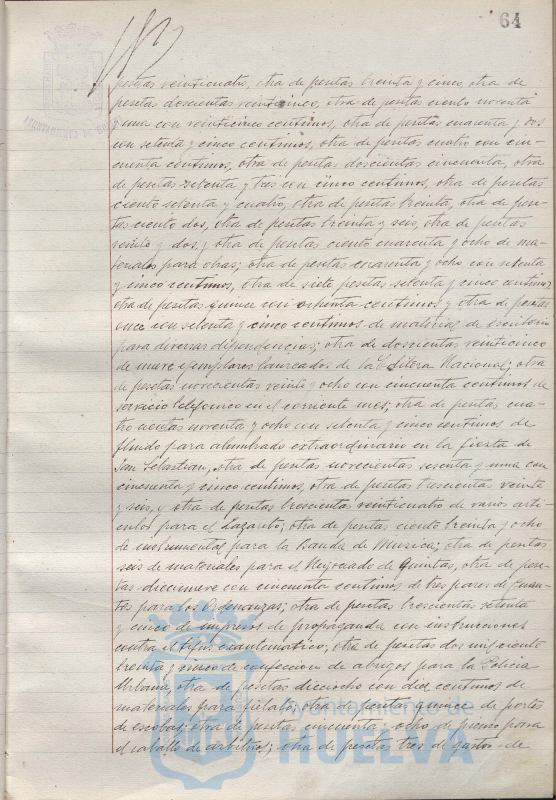 64
pesetas veinticuatro, otra de pesetas treinta y cinco, otra de
pesetas doscientas veinticinco, otra de pesetas ciento noventa
y una con veinticinco centimos, otra de pesetas cuarenta y dos
con setenta y cinco centimos, otra de pesetas cuatro con cin-
cuenta centimos, otra de pesetas doscientas cincuenta, otra
de pesetas setenta y tres con cinco centimos, otra de pesetas
ciento setenta y cuatro, otra de pesetas treinta, otra de pese-
tas ciento dos, otra de pesetas treinta y seis, otra de pesetas
veinte y dos, y otra de pesetas ciento cuarenta y ocho de ma-
teriales para obras; otra de pesetas cuarenta y ocho con setenta
y cinco centimos, otra de siete pesetas setenta y cinco centimos
otra de pesetas quince con ochenta centimos y otra de pesetas
once con setenta y cinco centimos de material de escritorio
para diversas dependencias; otra de doscientas veinticinco
de nueve ejemplares laureados de la Editora Nacional; otra
de pesetas novecientas veinte y ocho con cincuenta centimos de
servicio telefonico en el corriente mes; otra de pesetas cua-
trocientas noventa y ocho con setenta y cinco centimos de
fluido para alumbrado extraordinario en la fiesta de
San Sebastian, otra de pesetas novecientas sesenta y una con
cincuenta y cinco centimos, otra de pesetas trescientas veinte
y seis, y otra de pesetas trescientas veinticuatro de varios arti-
culos para el Lazareto; otra de pesetas ciento treinta y ocho
de instrumental para la Banda de Musica; otra de pesetas
seis de materiales para el Negociado de Quintas, otra de pese-
tas diecinueve con cincuenta centimos de tres pares de guan-
tes para los Ordenanzas; otra de pesetas trescientas setenta
y cinco de impresos de propaganda con instrucciones
contra el tifus exantematico; otra de pesetas dos mil ciento
treinta y cinco de confeccion de abrigos para la Policia
Urbana, otra de pesetas dieciocho con diez centimos de
materiales para fielato; otra de pesetas quince de portes
de escobas; otra de pesetas cincuenta y ocho de pienso para
el caballo de arbitrios; otra de pesetas tres de gastos de
AYUNTAMIENTO DE HUELVA
Ayuntamiento de
HUELVA